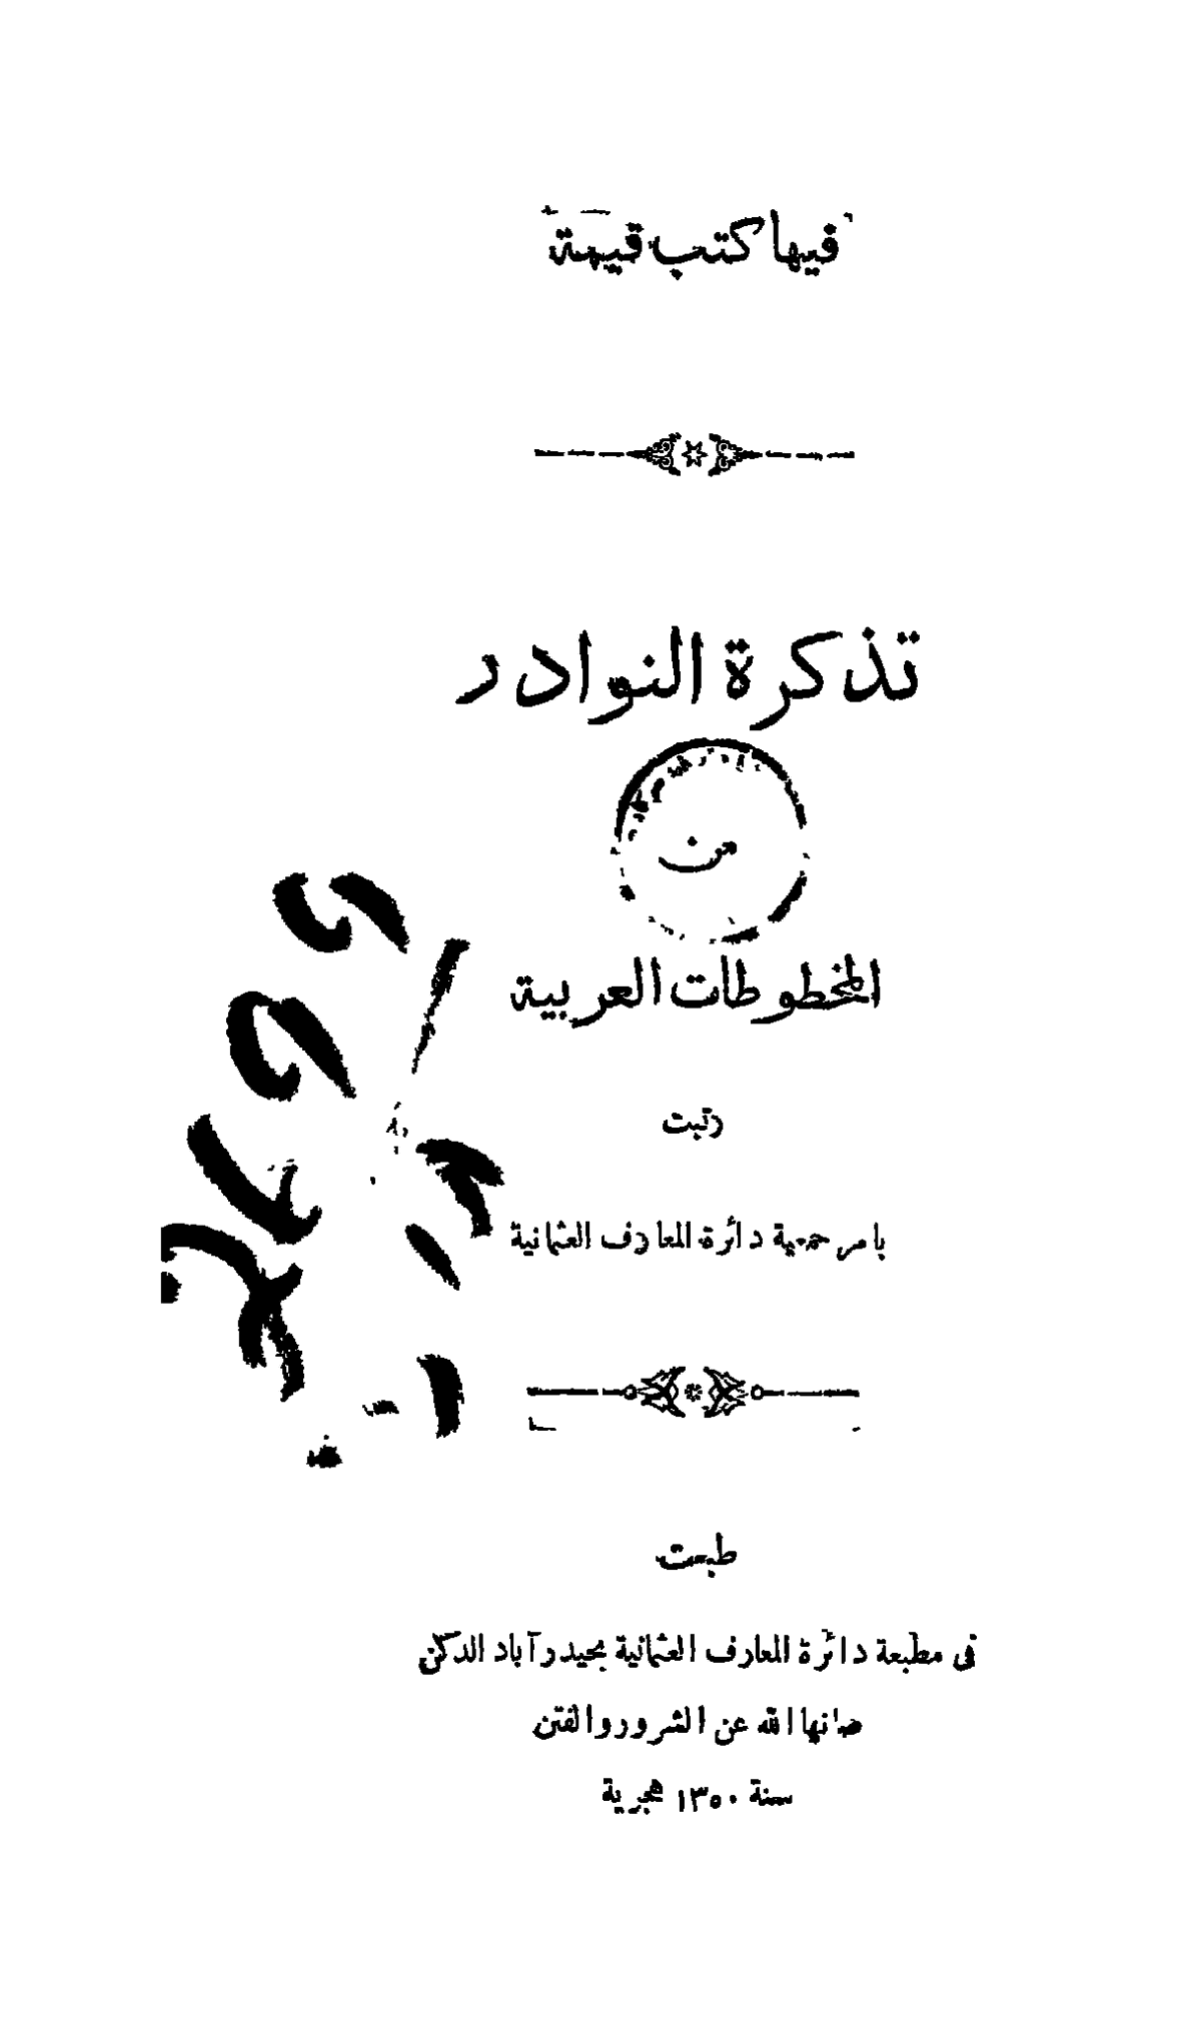 فيها كتب قيمة
تذكرة النوادر
من
المخطوطات العربية
رتبت
بامر جمعية دائرة المعارف العثمانية
طبعت
فى مطبعة دائرة المعارف العثمانية بحيدرآباد الدكن
صانها الله عن الشرور والفتن
سنة ١٣٥٠ هجرية